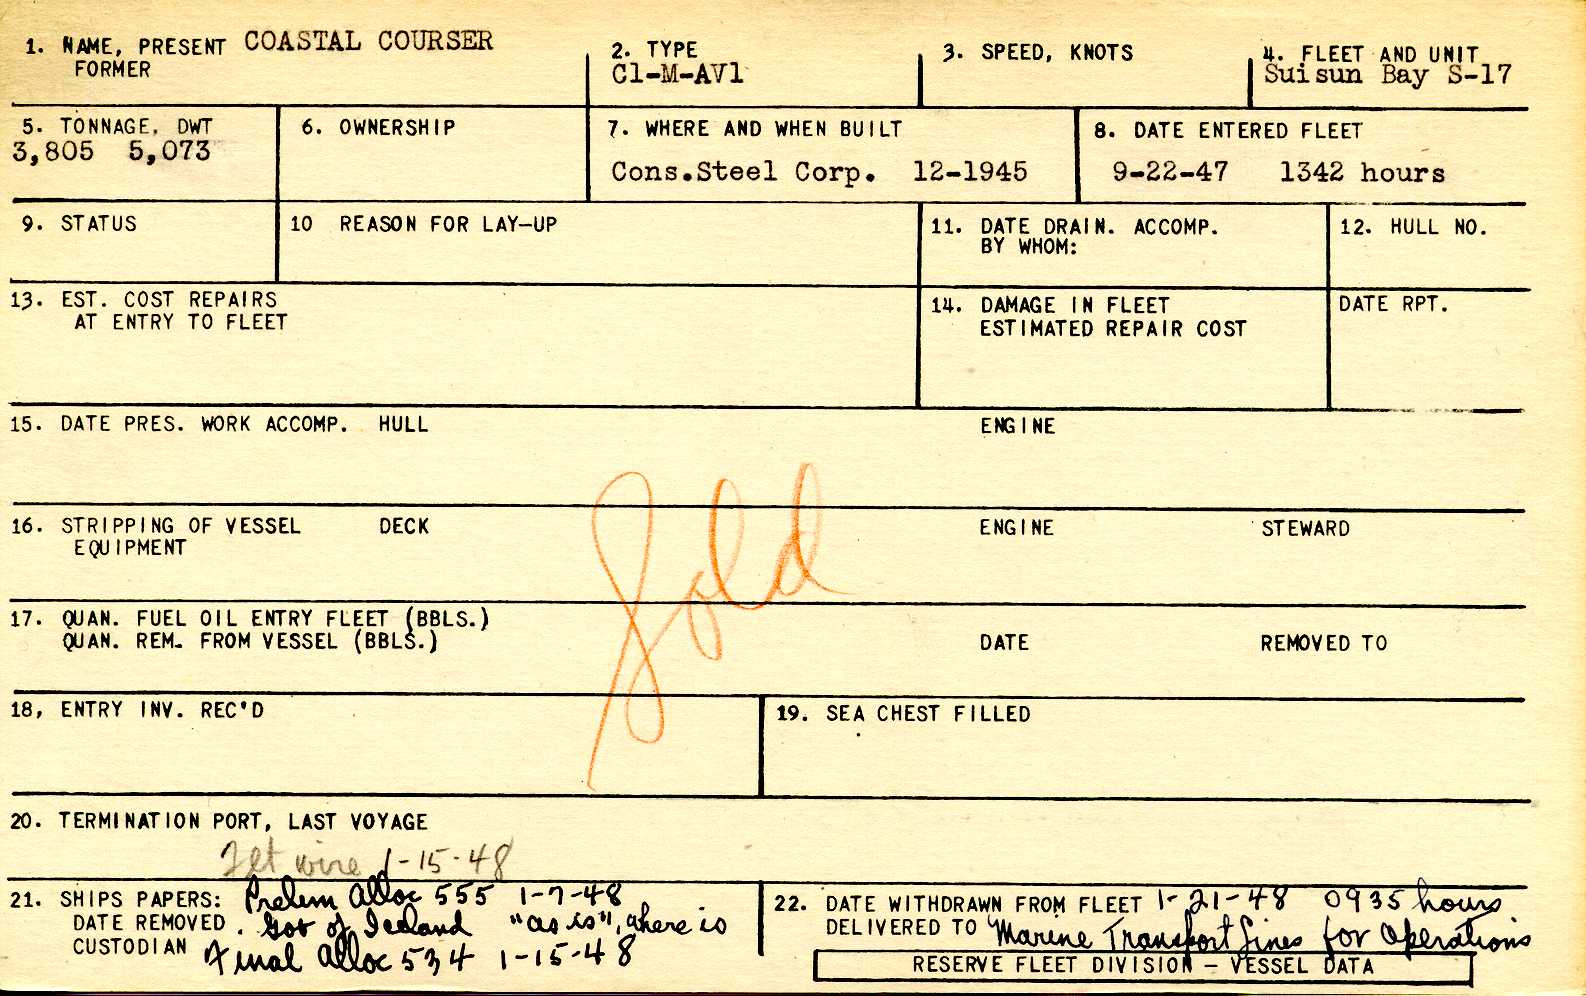 1. NAME, PRESENT COASTAL COURSER
FORMER
2. TYPE
C1-M-AV1
3. SPEED, KNOTS
4. FLEET AND UNIT
Suisun Bay S-17
5. TONNAGE, DWT
3,805 5,073
6. OWNERSHIP
7. WHERE AND WHEN BUILT
Cons.Steel Corp. 12-1945
8. DATE ENTERED FLEET
9-22-47 1342 hours
9. STATUS
10 REASON FOR LAY-UP
11. DATE DRAIN. ACCOMP.
BY WHOM:
12. HULL NO.
13. EST. COST REPAIRS
AT ENTRY TO FLEET
14. DAMAGE IN FLEET
ESTIMATED REPAIR COST
DATE RPT.
15. DATE PRES. WORK ACCOMP. HULL ENGINE
Sold
16. STRIPPING OF VESSEL DECK ENGINE STEWARD
EQUIPMENT
17. QUAN. FUEL OIL ENTRY FLEET (BBLS.)
QUAN. REM. FROM VESSEL (BBLS.) DATE REMOVED TO
18, ENTRY INV. REC'D
19. SEA CHEST FILLED
20. TERMINATION PORT, LAST VOYAGE
Flt wire 1-15-48
21. SHIPS PAPERS: Prelem Alloc 555 1-7-48
DATE REMOVED . Gov of Iceland "as is", where is
CUSTODIAN Final Alloc 534 1-15-48
22. DATE WITHDRAWN FROM FLEET 1-21-48 0935 hours
DELIVERED TO Marine Transport Lines for Operations
RESERVE FLEET DIVISION – VESSEL DATA